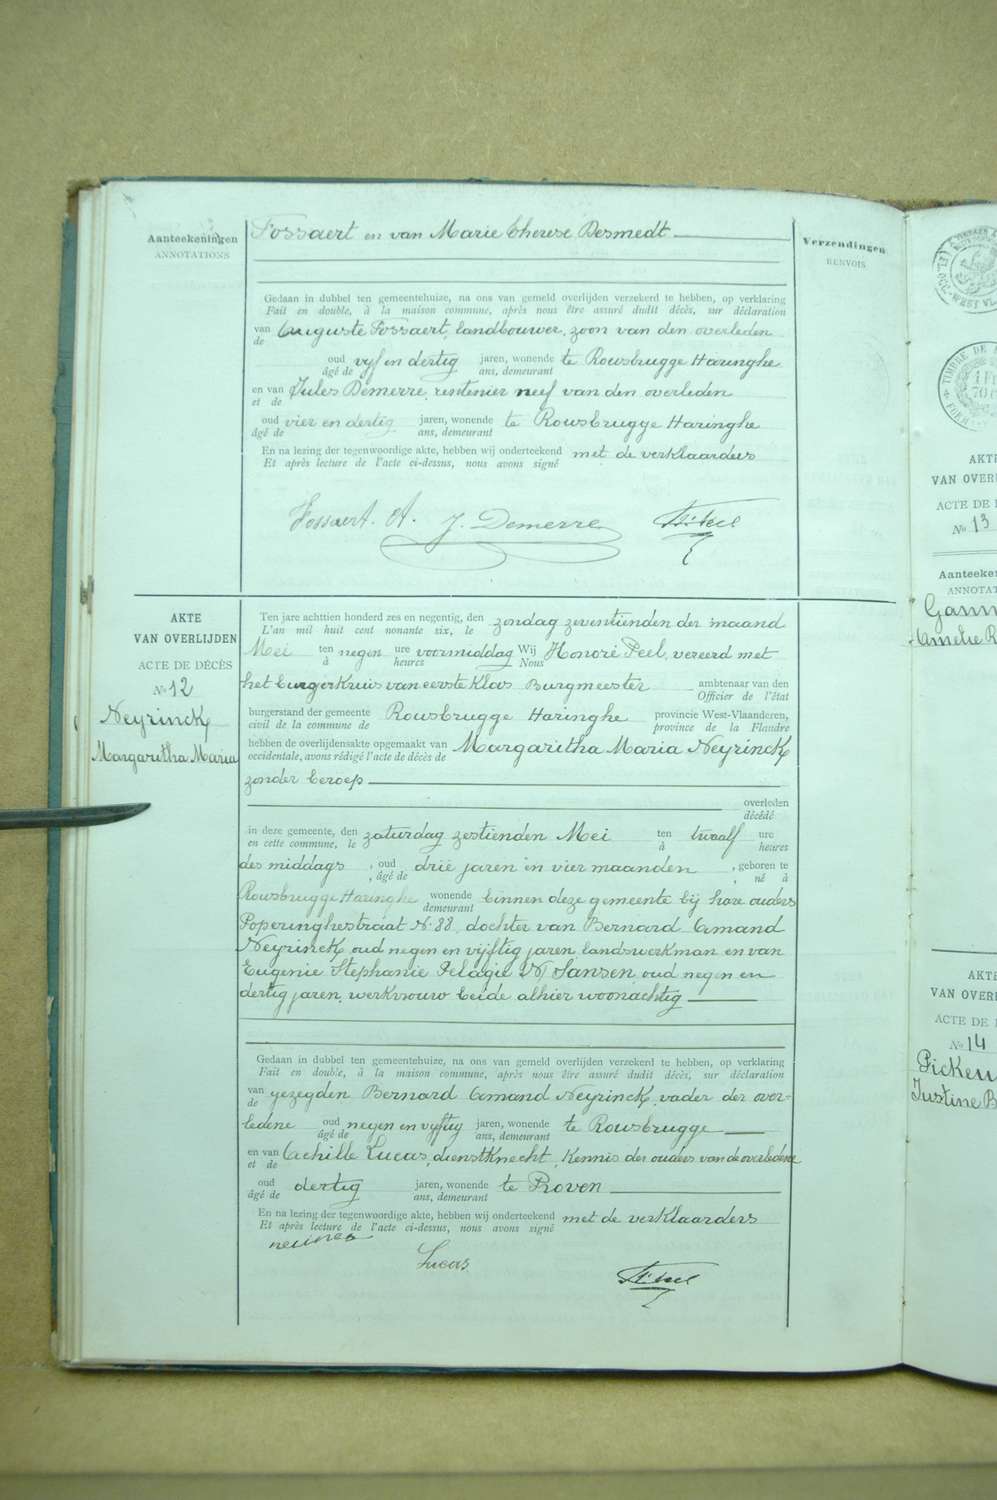 Aanteekeningen
ANNOTATIONS
Fossaert en van Marie Therese Desmedt
Verzendingen
RENVOIS
Gedaan in dubbel ten gemeentehuize, na ons van gemeld overlijden verzekerd te hebben, op verklaring
Fait en double, à la maison commune, après nous être assuré dudit décès, sur déclaration
van
de
Auguste Fossaert, landbouwer, zoon van den overleden
oud vyf en dertig jaren, wonende te Rousbrugge Haringhe
âgé de ans, demeurant
en van Jules Demerre, rentenier neef van den overleden
et de
oud vier en dertig jaren, wonende te Rousbrugge Haringhe
âgé de ans, demeurant
En na lezing der tegenwoordige akte, hebben wij onderteekend met de verklaarders
Et après lecture de l'acte ci-dessus, nous avons signé
Fossaert. A. J. Demerre
AKTE
VAN OVERLIJDEN
ACTE DE DÉCÈS
No 12
Neyrinck
Margaritha Maria
Ten jare achttien honderd zes en negentig, den zondag zeventienden der maand
L'an mil huit cent nonante six, le
Mei ten negen ure voormiddag Wij Honoré Peel, vereerd met
à heures Nous
het burgerkruis van eerste klas Burgmeester ambtenaar van den
Officier de l'état
burgerstand der gemeente Rousbrugge Haringhe provincie West-Vlaanderen,
civil de la commune de province de la Flandre
hebben de overlijdensakte opgemaakt van Margaritha Maria Neyrinck
occidentale, avons rédigé l'acte de décès de
zonder beroep
overleden
décédé
in deze gemeente, den zaturdag zestienden Mei ten twaalf ure
en cette commune, le à heures
des middags, oud drie jaren en vier maanden, geboren te
, âgé de , né à
Rousbrugge Haringhe wonende binnen deze gemeente bij hare ouders
demeurant
Poperinghestraat N. 38, dochter van Bernard Amand
Neyrinck oud negen en vijftig jaren landswerkman en van
Eugenie Stephanie Pelagie Jansen, oud negen en
dertig jaren, werkvrouw beide alhier woonachtig
Gedaan in dubbel ten gemeentehuize, na ons van gemeld overlijden verzekerd te hebben, op verklaring
Fait en double, à la maison commune, après nous être assuré dudit décès, sur déclaration
van gezegden Bernard Amand Neyrinck, vader der over-
de
ledene oud negen en vyftig jaren, wonende te Rousbrugge
âgé de ans, demeurant
en van Achille Lucas, dienstknecht, kennis der ouders van de overledene
et de
oud dertig jaren, wonende te Proven
âgé de ans, demeurant
En na lezing der tegenwoordige akte, hebben wij onderteekend met de verklaarders
Et après lecture de l'acte ci-dessus, nous avons signé
Lucas
TIMBRE DE
AKTE
VAN OVER
ACTE DE
No 13
Aanteeke
ANNOTAT
Amelie R
AKTE
VAN OVER
ACTE DE
No 14
Justine B